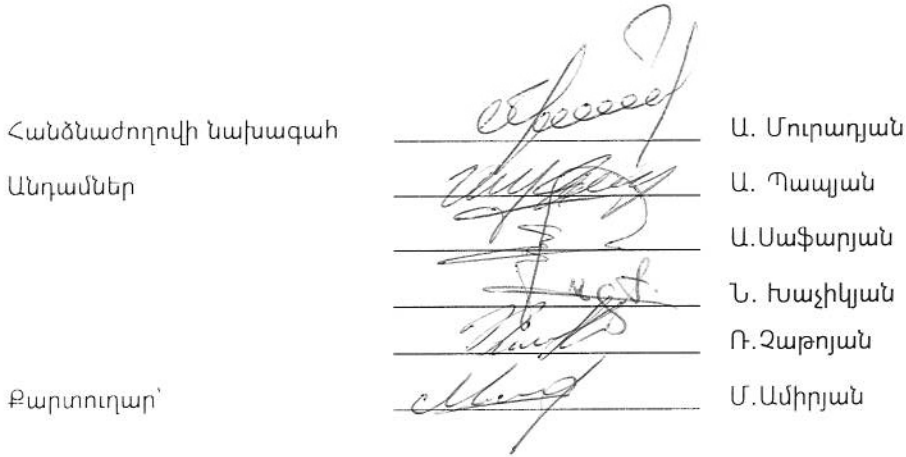 Հանձնաժողովի նախագահ Ա. Մուրադյան
Անդամներ Ա. Պապյան
Ա.Սաֆարյան
Ն. Խաչիկյան
Ռ.Չաթոյան
Քարտուղար՝ Մ.Ամիրյան